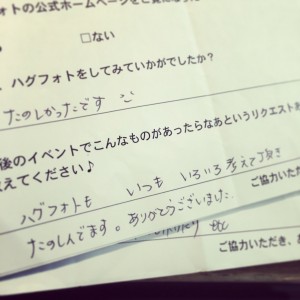 ォトの公式ホームページをご覧になりま
□ない
、ハグフォトをしてみていかがでしたか？
たのしかったです
後のイベントでこんなものがあったらなあというリクエストあ
えてください♪
ハグフォトも いつも いろいろ考えて頂き
ご協力いただ
たのしんでます。ありがとうございました。
etc
ご協力いただき、あ